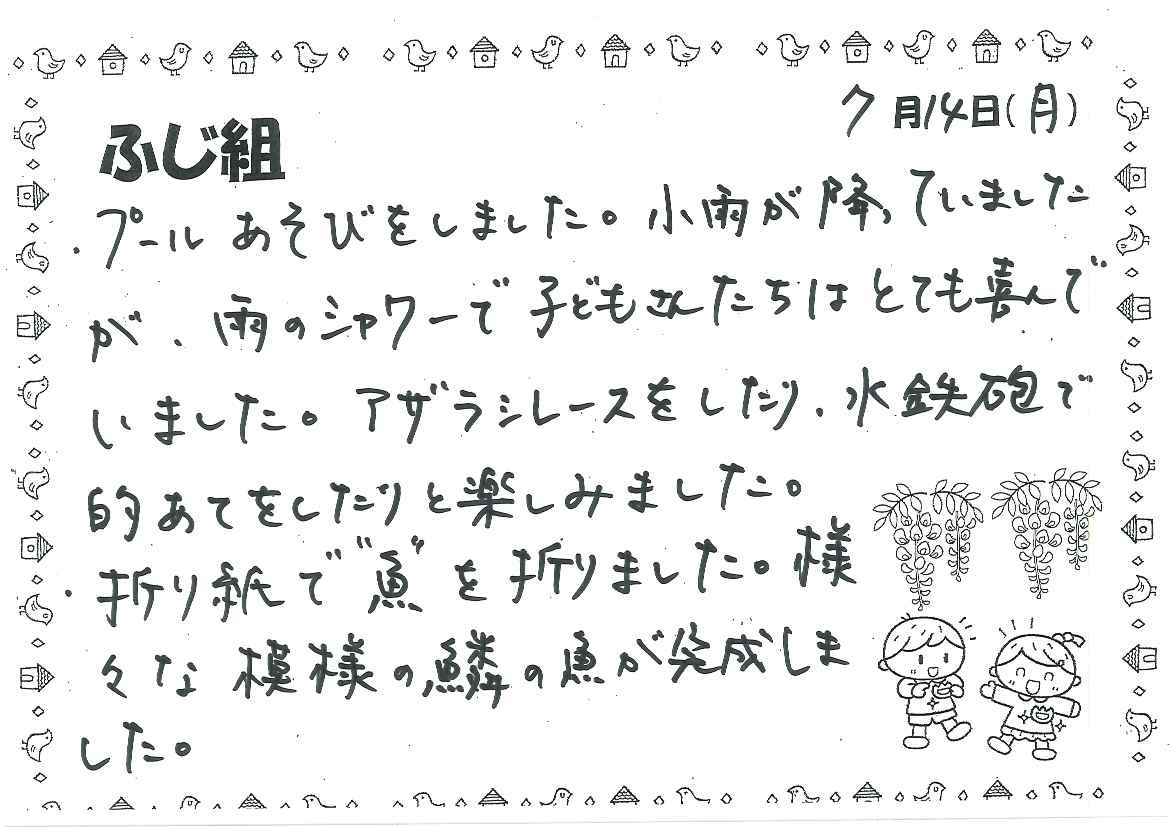 7月14日(月)
ふじ組
・プールあそびをしました。小雨が降っていました
が、雨のシャワーで子どもさんたちはとても喜んで
いました。アザラシレースをしたり、水鉄砲で
的あてをしたりと楽しみました。
・折り紙で"魚"を折りました。様
々な模様の鱗の魚が完成しま
した。